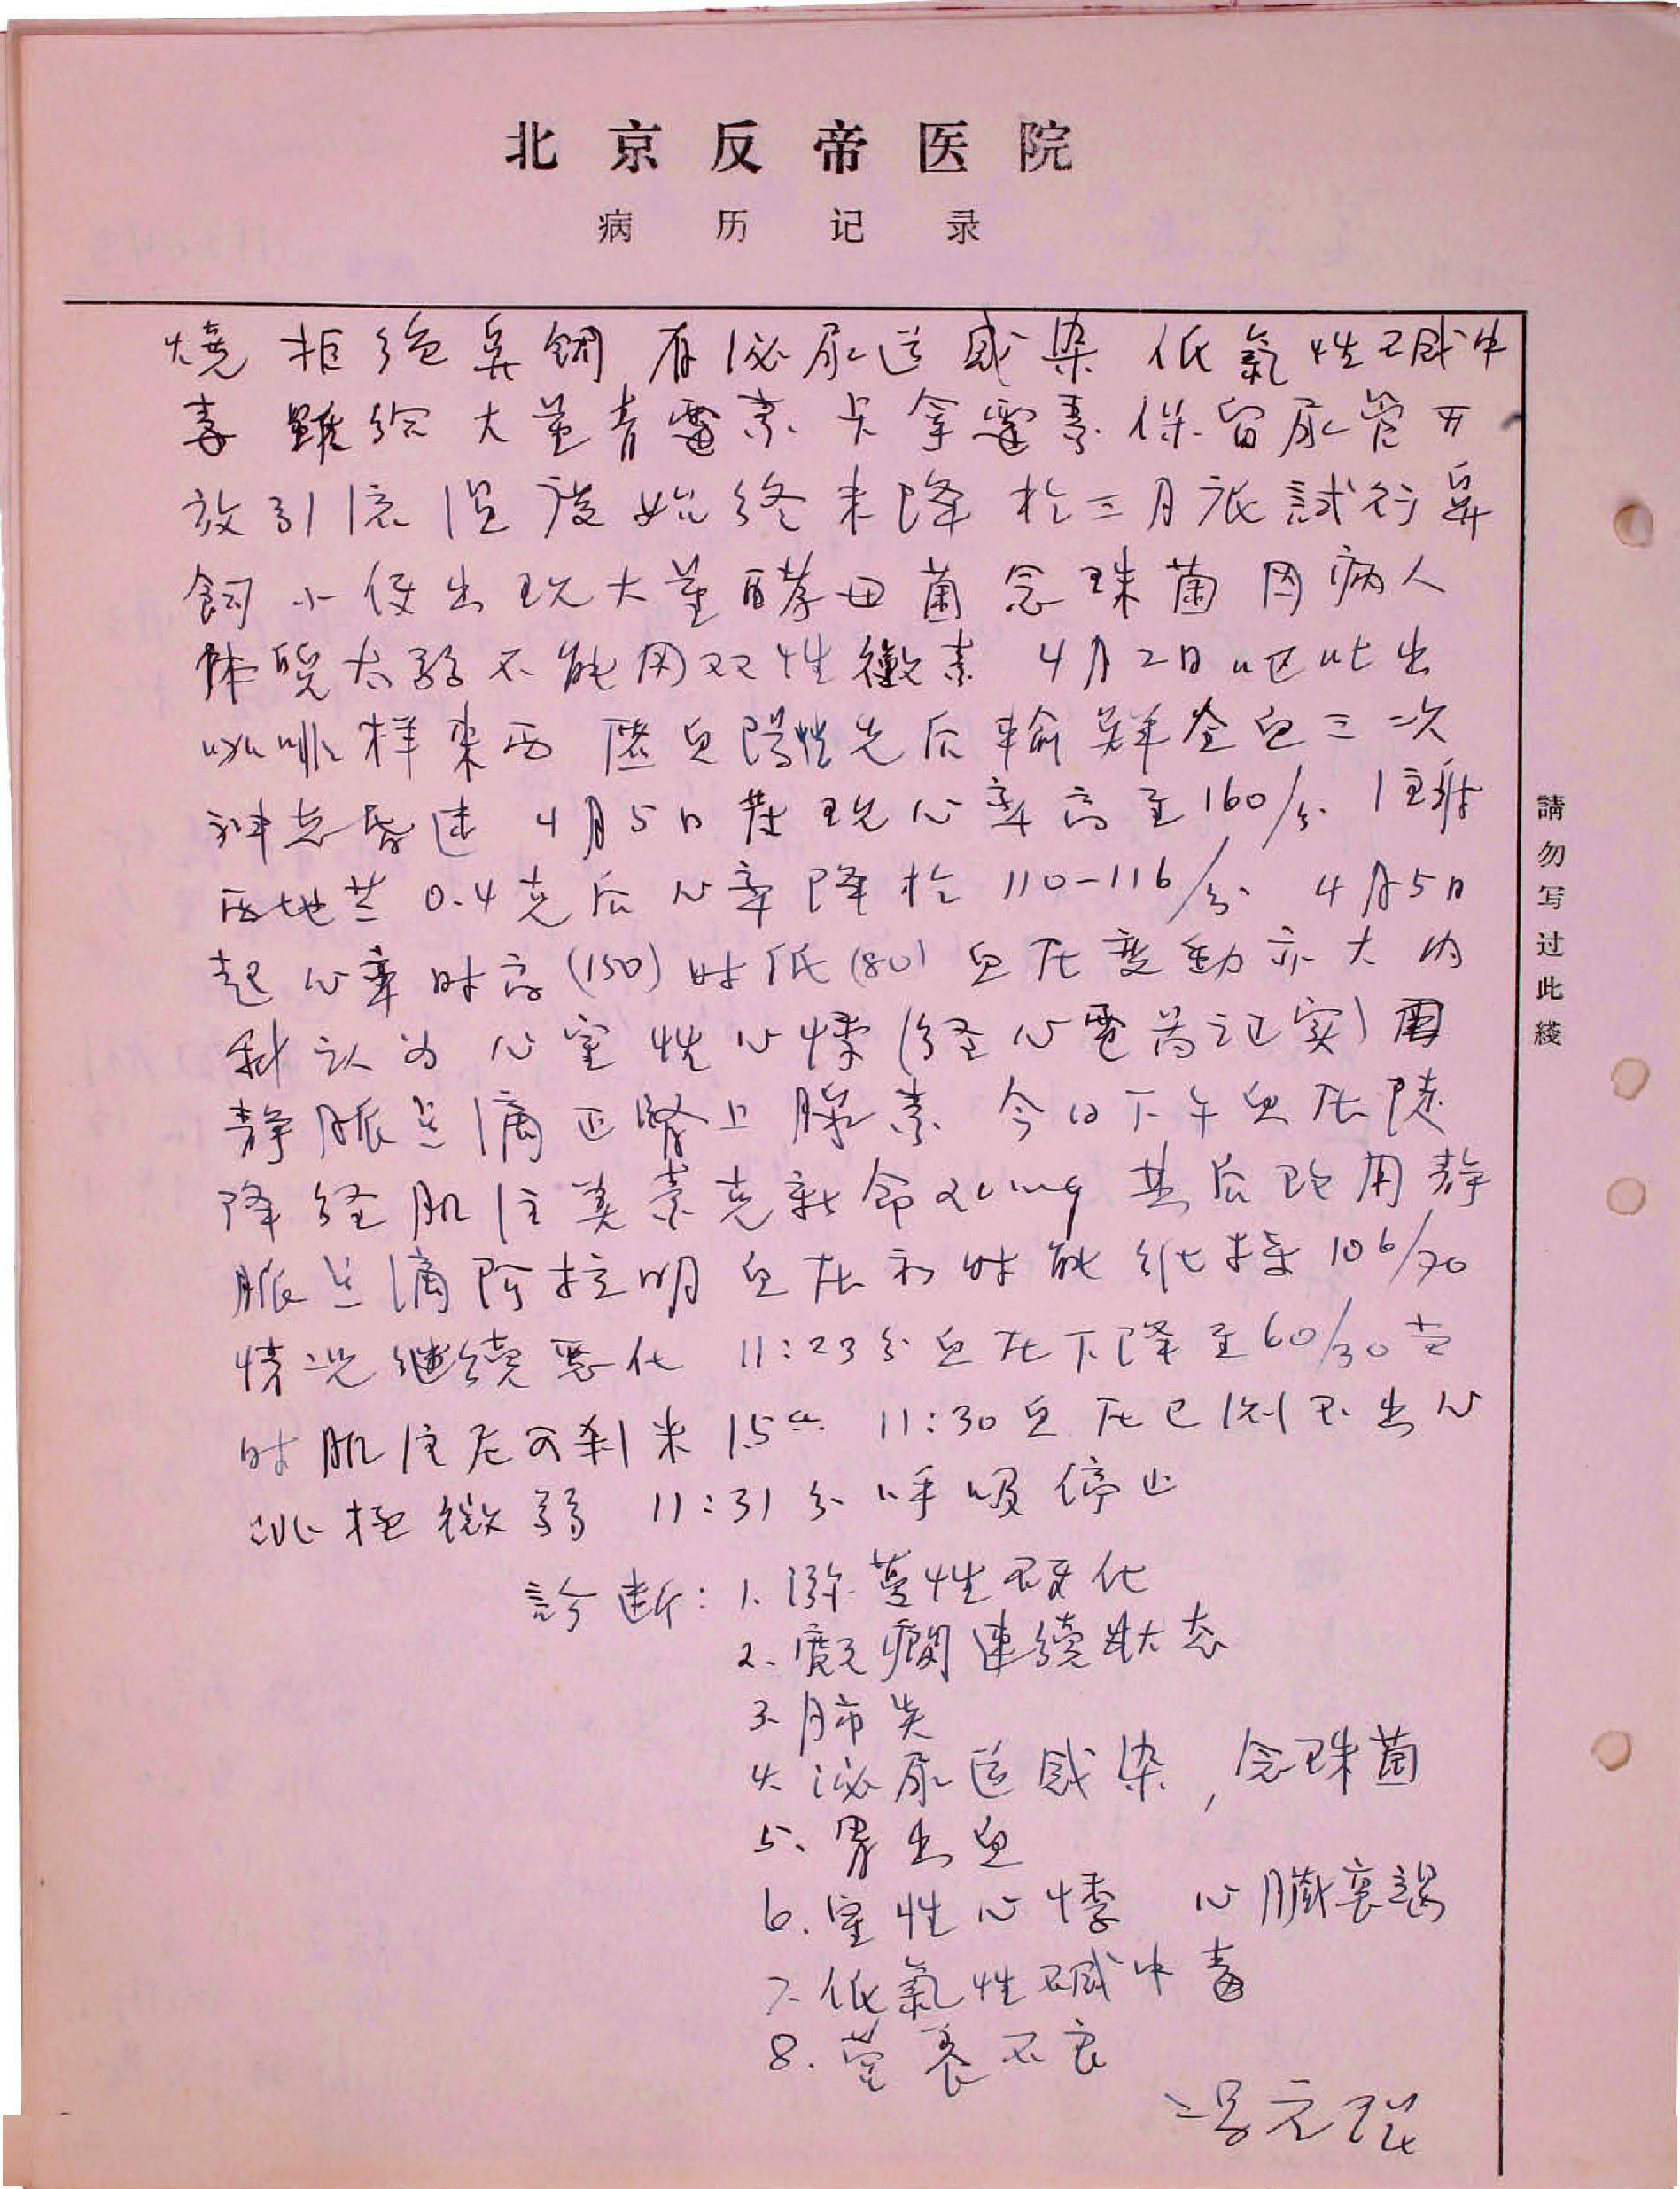 北京反帝医院
病历记录
燒 拒绝鼻飼 有泌尿道感染 低氯性碱中
毒 雖给大量青霉素 卡拿霉素 保留尿管开
放引流 温度始终未降 于三月底試行鼻
飼 小便出现大量酵母菌 念珠菌 因病人
体 太弱不能用双性霉素 4月2日呕吐出
咖啡样東西 潜血陽性先后输鲜全血三次
神志昏迷 4月5日发现心率高至160/分 注射
西地兰0.4克后心率降于110-116/分 4月5日
起心率时高(150)时低(80) 血压变動亦大 内
科认为心室性心悸(经心電图证实)用
静脈点滴正腎上腺素 今日下午血压陡
降 经肌注美素克新命20mg 其后改用静
脈点滴阿拉明血压初时能维持106/70
情况继续恶化 11:23分血压下降至60/30 立
时肌注尼可刹米1.5cc 11:30血压已测不出心
跳极微弱 11:31分呼吸停止
診断: 1. 弥蔓性硬化
2. 癲癇連续狀态
3. 肺炎
4. 泌尿道感染, 念珠菌
5. 胃出血
6. 室性心悸 心臟衰竭
7. 低氯性碱中毒
8. 营养不良
冯元
請勿写过此綫